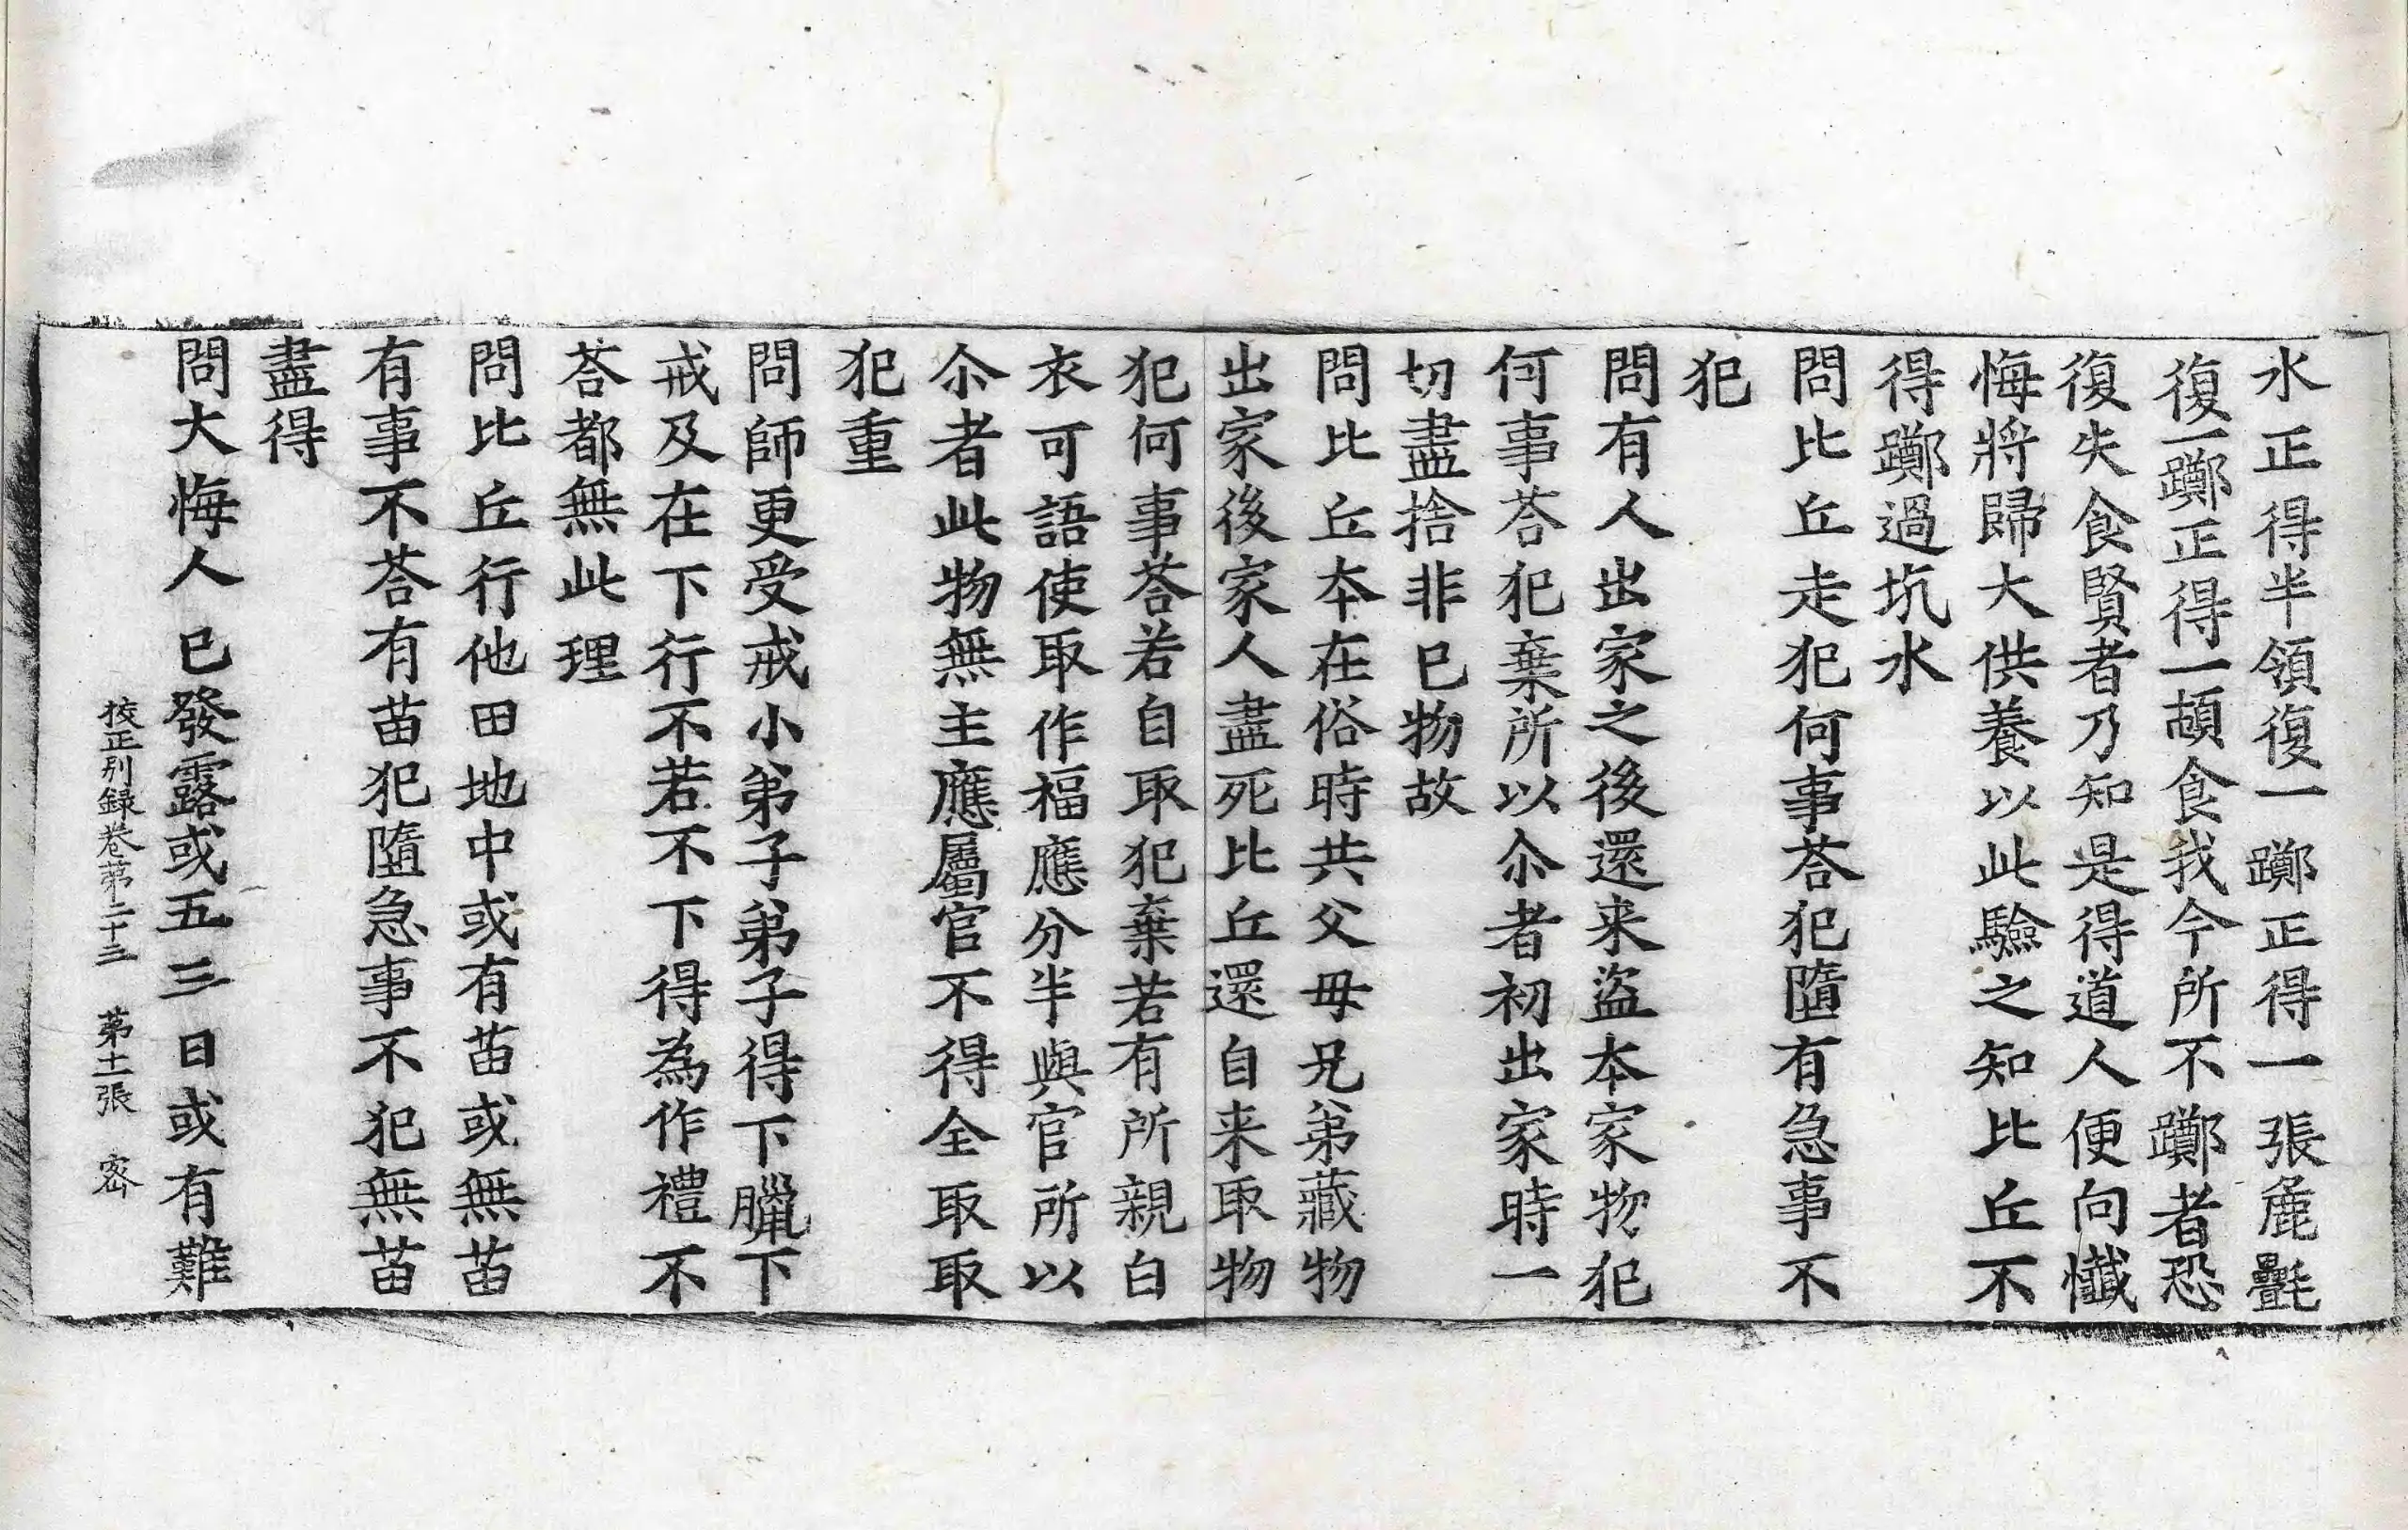 水正得半領復一躑正得一張麁㲲
復一躑正得一頓食我今所不躑者恐
復失食賢者乃知是得道人便向懺
悔將歸大供養以此驗之知比丘不
得躑過坑水
問比丘走犯何事荅犯墮有急事不
犯
問有人出家之後還来盜本家物犯
何事荅犯棄所以尒者初出家時一
切盡捨非已物故
問比丘本在俗時共父毋兄弟藏物
出家後家人盡死比丘還自来取物
犯何事荅若自取犯棄若有所親白
衣可語使取作福應分半與官所以
尒者此物無主應屬官不得全取取
犯重
問師更受戒小弟子弟子得下臈下
戒及在下行不若不下得為作禮不
荅都無此理
問比丘行他田地中或有苗或無苗
有事不荅有苗犯墮急事不犯無苗
盡得
問大悔人已發露或五三日或有難
挍正別録卷苐二十三　苐十一張　宻